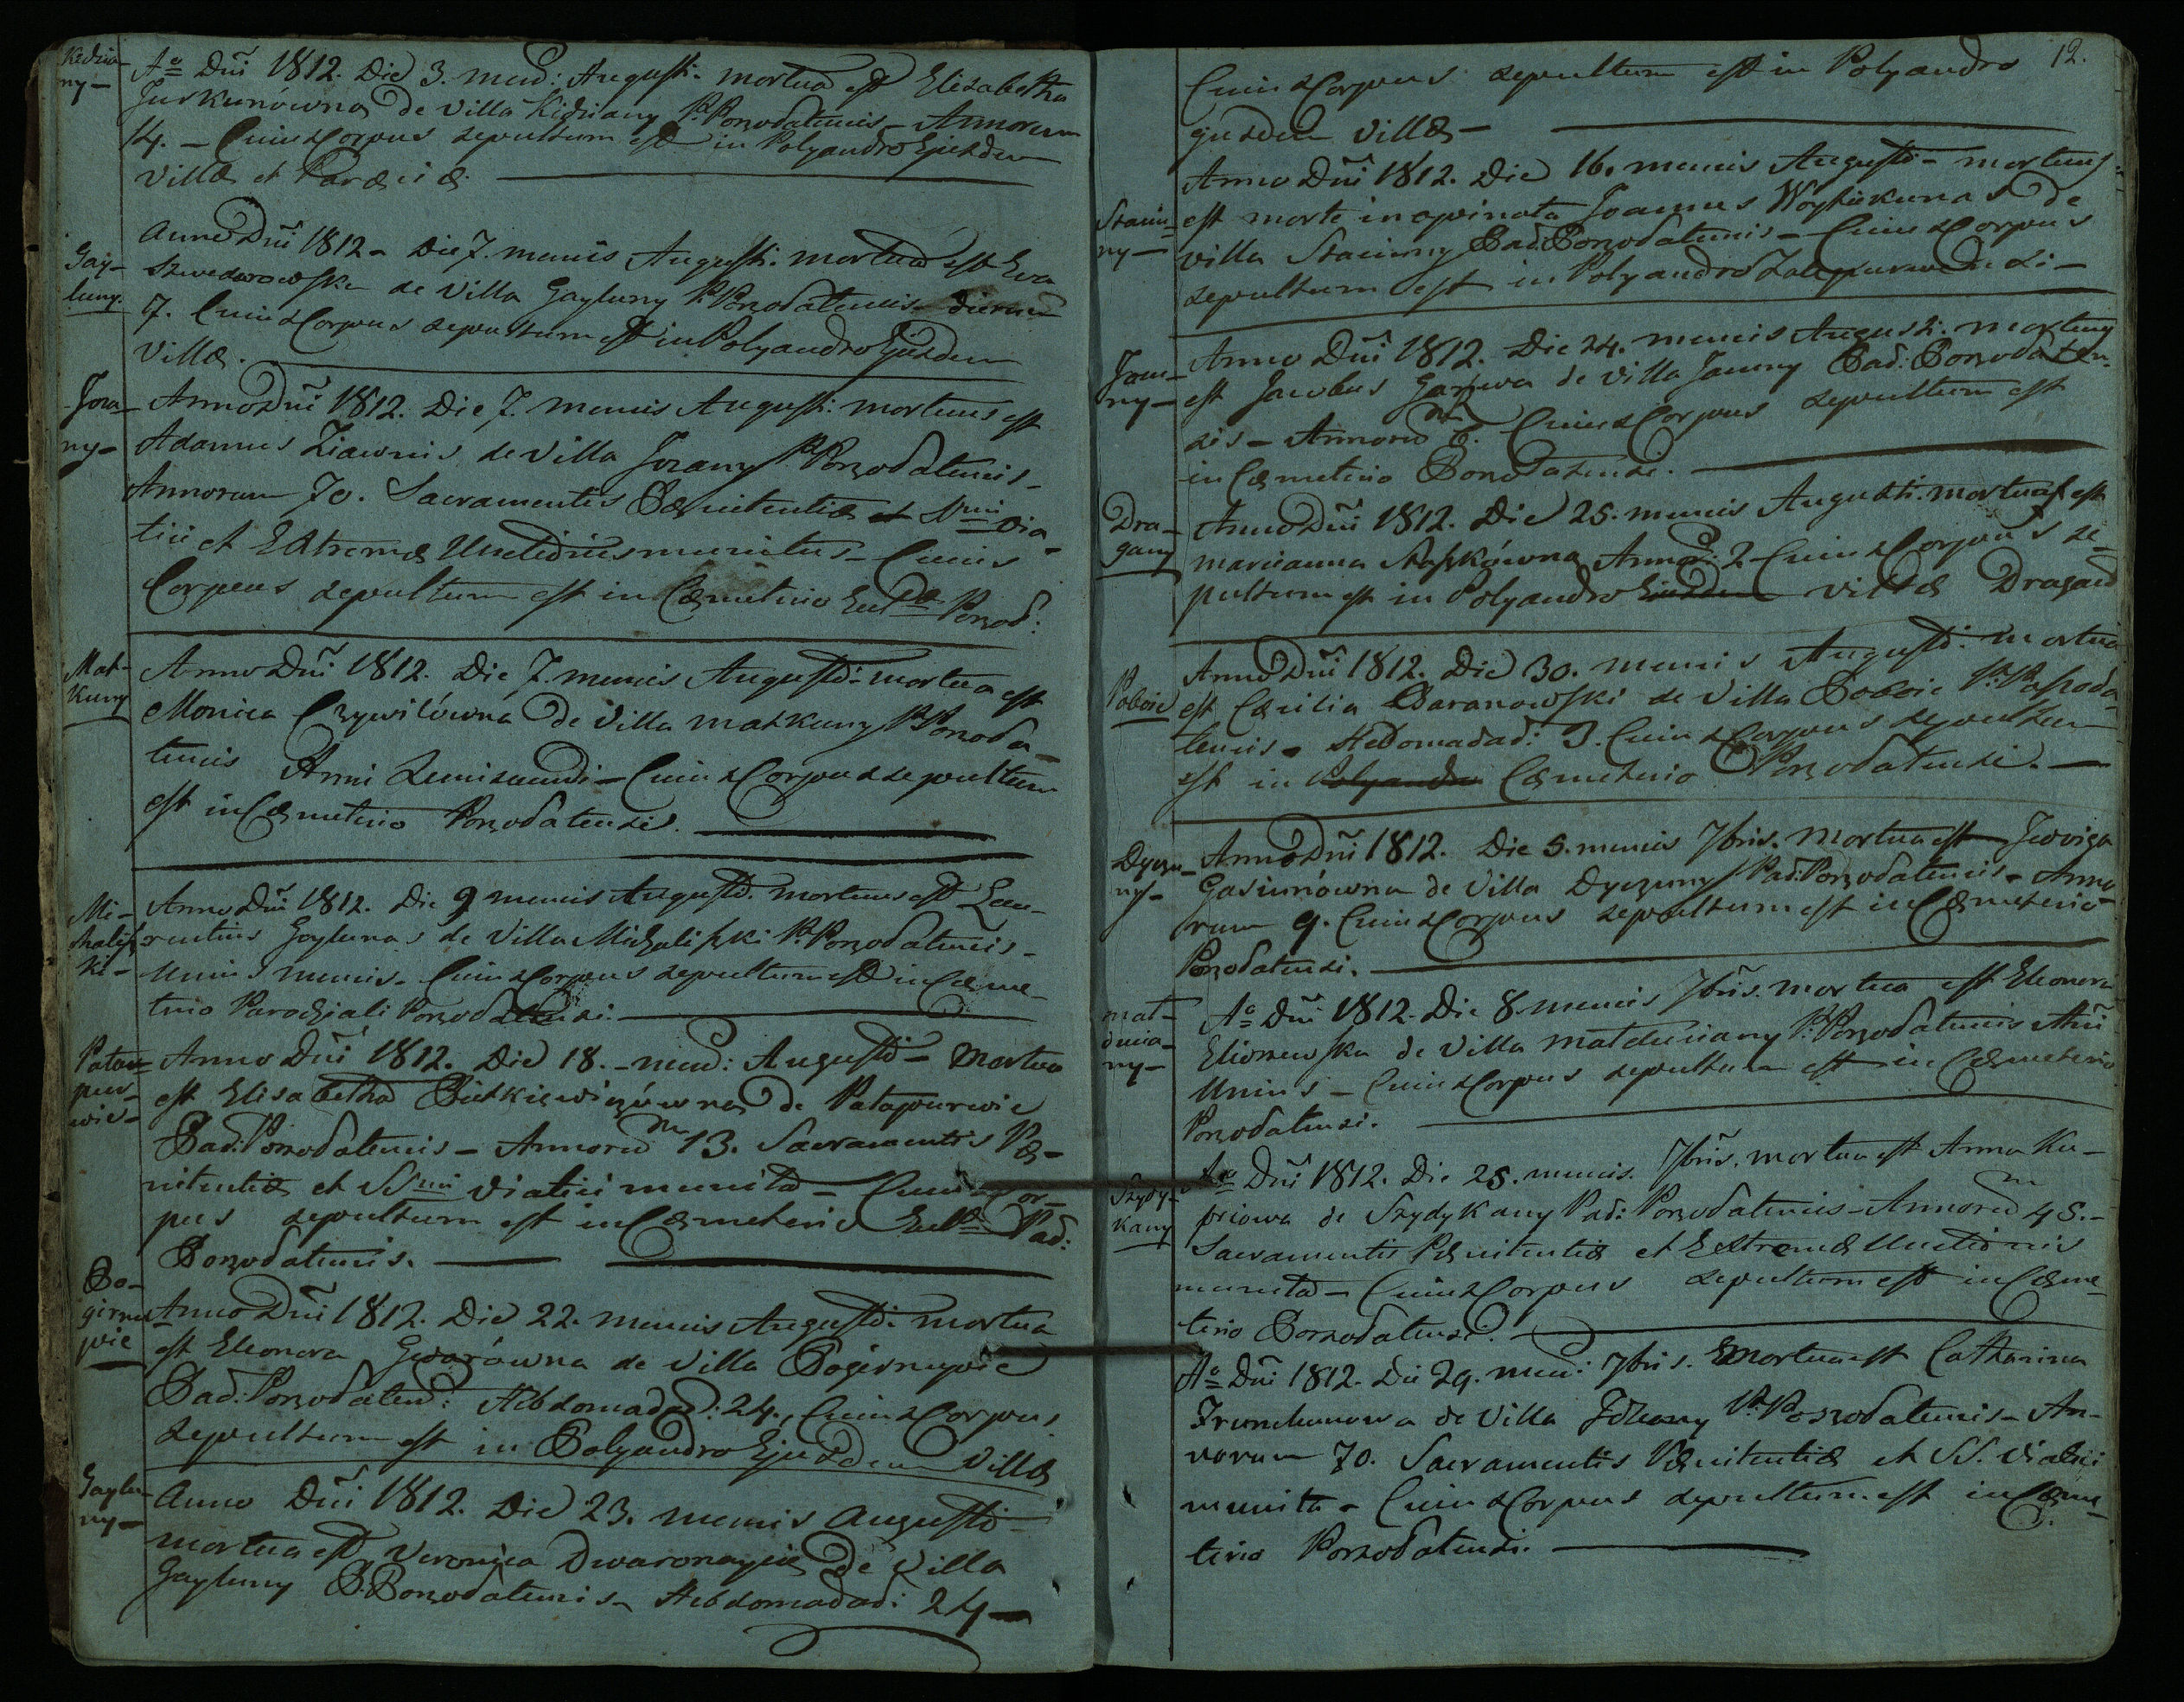 Kidzia-
ny-
Aº Dñi 1812. Die 3. mens: Augusti. mortua est Elisabetha
Jurkunówna de Villa Kidziany P. Poszodatensis - Annorum
14. - Cuius Corpus sepultum est in Polyandro Ejusdem
Villæ et Paræciæ.
Gay-
luny.
Anno Dñi 1812 - Die 7. mensis Augusti. mortua est Eva
de Villa Gayluny P. Poszodatensis dierum
7. Cuius Corpus sepultum est in Polyandro Ejusdem
Villæ.
Joza-
ny-
Anno Dñi 1812. Die 7. mensis Augusti. mortuus est
Adamus Ziawnis de Villa Jozany P. Poszodatensis-
Annorum 70. Sacramentis Pœnitentiæ et Ssmi Via-
tici et Extremæ Unctionis munitus - Cuius
Corpus sepultum est in Cœmeterio Eccl. Poszod:
Mat-
kuny
Anno Dñi 1812. Die 7. mensis Augusti. mortua est
Monica Czywilówna de Villa Matkuny P. Poszoda-
tensis Anni Semisecundi - Cuius Corpus sepultum
est in Cœmeterio Poszodatensi.
Mi-
chalisz
ki-
Anno Dñi 1812. Die 9 mensis Augusti. mortuus est Lau-
rentius Gaylunas de Villa Michaliszki P. Poszodatensis -
Unius mensis. Cuius Corpus sepultum est in Cœme-
terio Parochiali Poszodatensi.
Patau-
pur-
wie-
Anno Dñi 1812. Die 18. mens: Augusti - Mortua
est Elisabetha Rutkiewiczówna de Patapurwie
Pad: Poszodatensis - Annorum 13. Sacramentis Pœ-
nitentiæ et SSmi Viatici munita - Cuius Cor-
pus sepultum est in Cœmeterio Eccl. Pad:
Poszodatensis.
Po-
girnu
pie
Anno Dñi 1812. Die 22. mensis Augusti. mortua
est Eleonora de Villa Pogirnupie
Pad: Poszodaten: Hebdomadar: 24., Cuius Corpus
sepultum est in Polyandro Ejusdem Villæ
Gaylu-
ny-
Anno Dñi 1812. Die 23. mensis Augusti -
mortua est Veronica de Villa
Gayluny P. Poszodatensis - Hebdomadad: 24 -
12.
Cuius Corpus sepultum est in Polyandro
ejusdem Villæ -
Staciu-
ny-
Anno Dñi 1812. Die 16. mensis Augusti - mortuus
est morte inopinata Joannes Woytiekunas de
villa Staciuny Pad: Poszodatensis - Cuius Corpus
sepultum est in Polyandro
Jau-
ny-
Anno Dñi 1812. Die 24. mensis Augusti. mortuus
est Jacobus de Villa Jauny Pad: Poszodaten-
sis - Annorum 6. Cuius Corpus sepultum est
in Cœmeterio Poszodatensi.
Dra-
gany
Anno Dñi 1812. Die 25. mensis Augusti. mortua est
Marianna Annor: 2 Cuius Corpus se-
pultum est in Polyandro Ejusdem villæ Dragan
Poboie
Anno Dñi 1812. Die 30. mensis Augusti. mortua
est Cæcilia Baranowski de Villa Poboie P. Poszoda-
tensis - Hebdomadad: 3. Cuius Corpus sepultum
est in Polyandro Cœmeterio Poszodatensi.
Dyczu-
ny-
Anno Dñi 1812. Die 5. mensis 7bris. Mortua est Jedviga
Gasiunówna de Villa Dyczuny Pad: Poszodatensis - Anno-
rum 9. Cuius Corpus sepultum est in Cœmeterio
Poszodatensi.
mat-
ducia-
ny-
Aº Dñi 1812. Die 8. mensis 7bris. mortua est Eleonora
de Villa Matduciany P. Poszodatensis Añi
Unius - Cuius Corpus sepultum est in Cœmeterio
Poszodatensi.
Szydy-
kany
Aº Dñi 1812. Die 25. mensis. 7bris. mortua est Anna Ku-
priowa de Szydykany Pad: Poszodatensis - Annorum 45. -
Sacramentis Pœnitentiæ et Extremæ Unctionis
munita - Cuius Corpus sepultum est in Cœme-
terio Poszodatensi.
Aº Dñi 1812. Die 29. mens: 7bris. mortua est Catharina
de Villa P. Poszodatensis - An-
norum 70. Sacramentis Pœnitentiæ et SS. Viatici
munita - Cuius Corpus sepultum est in Cœme-
terio Poszodatensi.